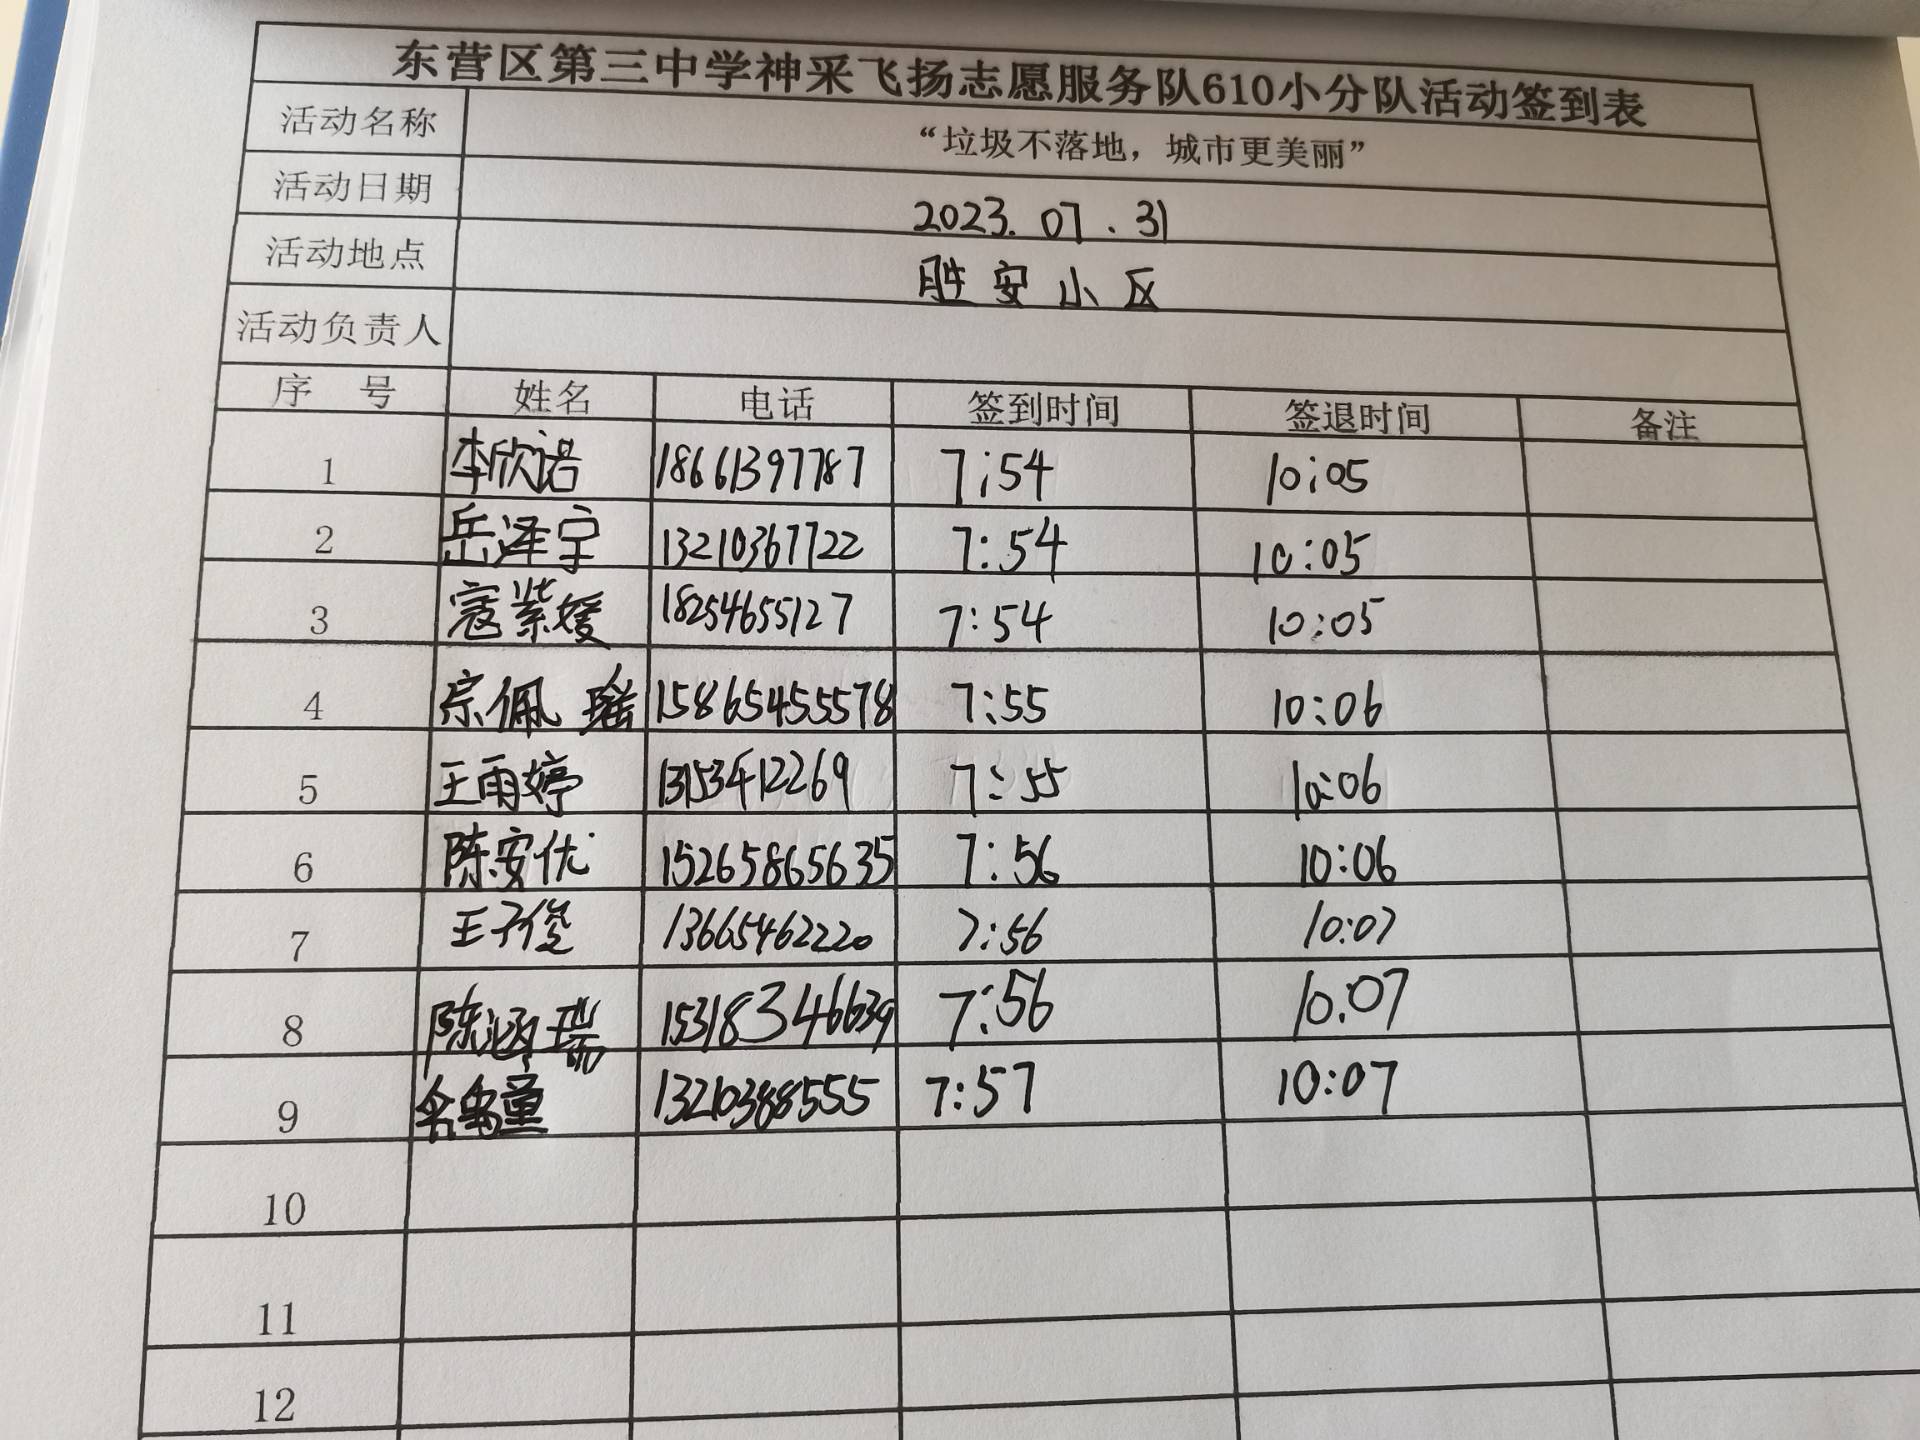 东营区第三中学神采飞扬志愿服务队610小分队活动签到表
活动名称 “垃圾不落地，城市更美丽”
活动日期 2023.07.31
活动地点 胜安小区
活动负责人
序 号 姓名 电话 签到时间 签退时间 备注
1 李欣诺 18661397787 7:54 10:05
2 岳泽宇 13210367722 7:54 10:05
3 寇紫媛 18254655127 7:54 10:05
4 宗佩瑶 15865455578 7:55 10:06
5 王雨婷 13153412269 7:55 10:06
6 陈安优 15265865635 7:56 10:06
7 王子俊 13665462220 7:56 10:07
8 陈涵瑞 15318346639 7:56 10:07
9 13210388555 7:57 10:07
10
11
12